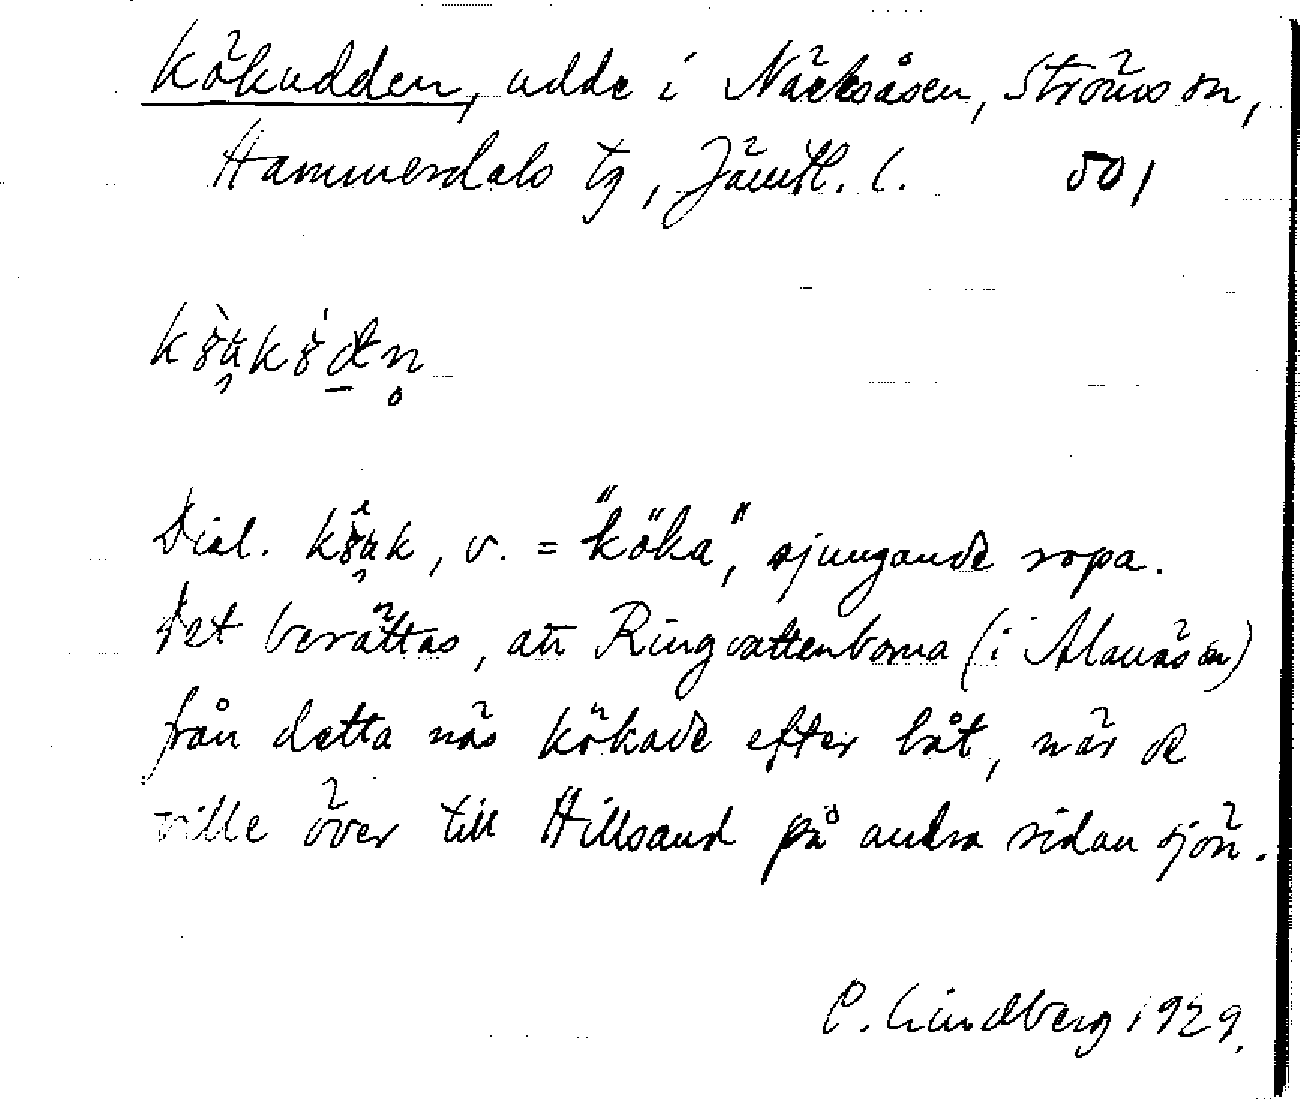 Kökudden, udde i Näcksåsen, Ströms sn,
Hammerdals tg, Jämtl. l. 501
Dial. , v. = "köka", sjungande ropa.
Det berättas, att Ringvattenborna (i Alanäs sn)
från detta näs kökade efter båt, när de
ville över till Hillsand på andra sidan sjön.
C. Lindberg 1929.